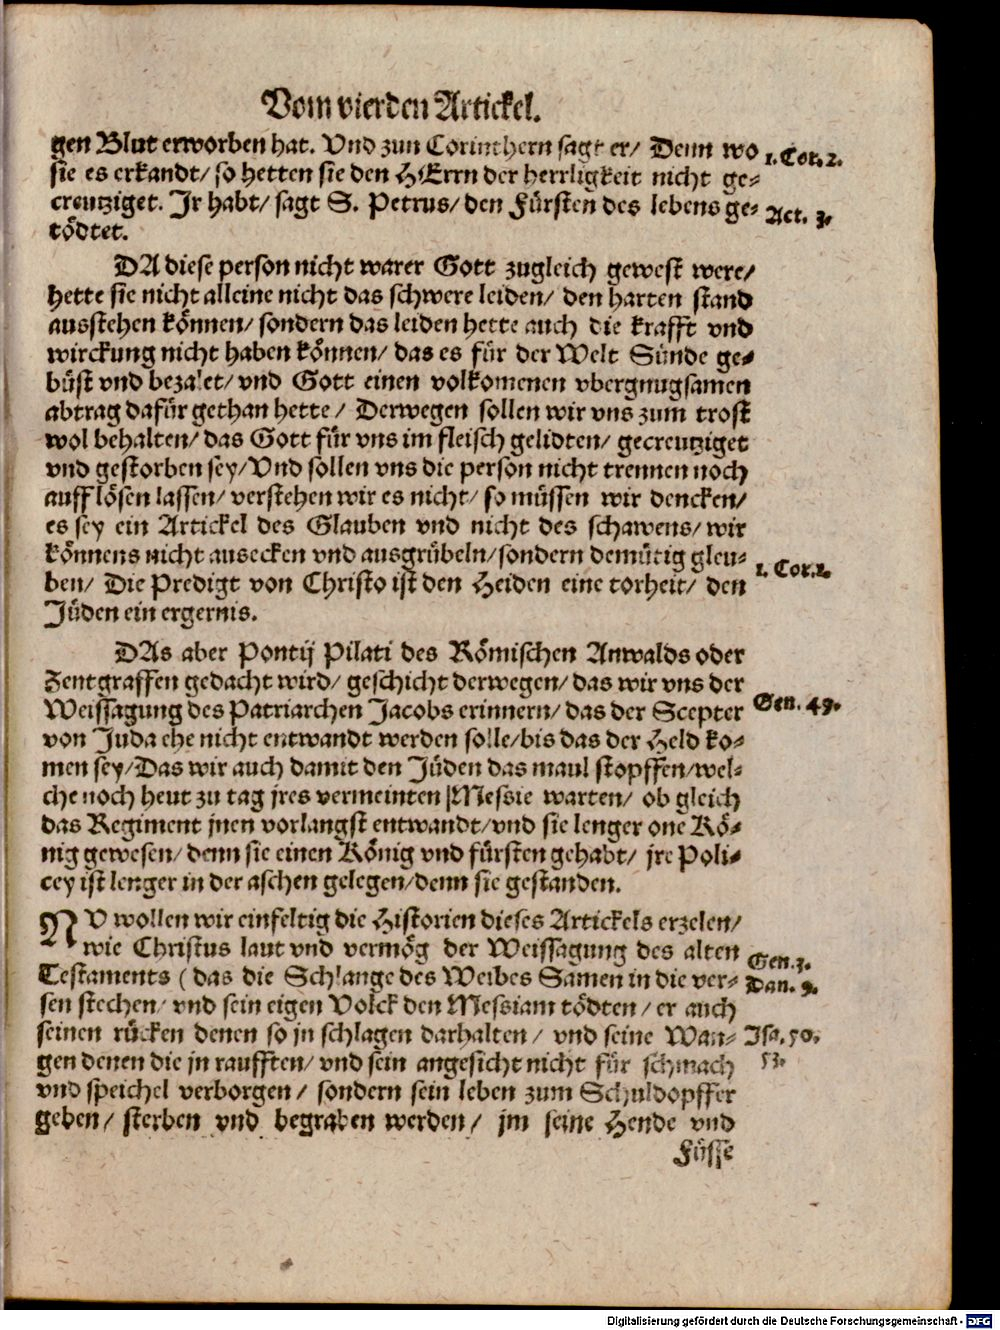 Vom vierden Artickel.
gen Blut erworben hat. Vnd zun Corinthern sagt er/ Denn wo
1. Cor. 2.
sie es erkandt/ so hetten sie den HErrn der herrligkeit nicht ge-
creutziget. Ir habt/ sagt S. Petrus/ den Fürsten des lebens ge-
Act. 3.
tödtet.
DA diese person nicht warer Gott zugleich gewest were/
hette sie nicht alleine nicht das schwere leiden/ den harten stand
ausstehen können/ sondern das leiden hette auch die krafft vnd
wirckung nicht haben können/ das es für der Welt Sünde ge-
büst vnd bezalet/ vnd Gott einen volkomenen vbergnugsamen
abtrag dafür gethan hette/ Derwegen sollen wir vns zum trost
wol behalten/ das Gott für vns im fleisch gelidten/ gecreutziget
vnd gestorben sey/ Vnd sollen vns die person nicht trennen noch
aufflösen lassen/ verstehen wir es nicht/ so müssen wir dencken/
es sey ein Artickel des Glauben vnd nicht des schawens/ wir
könnens nicht ausecken vnd ausgrübeln/ sondern demütig gleu-
ben/ Die Predigt von Christo ist den Heiden eine torheit/ den
1. Cor. 1.
Jüden ein ergernis.
DAs aber Pontij Pilati des Römischen Anwalds oder
Zentgraffen gedacht wird/ geschicht derwegen/ das wir vns der
Weissagung des Patriarchen Jacobs erinnern/ das der Scepter
Gen. 49.
von Juda ehe nicht entwandt werden solle/ bis das der Held ko-
men sey/ Das wir auch damit den Jüden das maul stopffen/ wel-
che noch heut zu tag jres vermeinten Messie warten/ ob gleich
das Regiment jnen vorlangst entwandt/ vnd sie lenger one Kö-
nig gewesen/ denn sie einen König vnd fürsten gehabt/ jre Poli-
cey ist lenger in der aschen gelegen/ denn sie gestanden.
NV wollen wir einfeltig die Historien dieses Artickels erzelen/
wie Christus laut vnd vermög der Weissagung des alten
Gen. 3.
Testaments (das die Schlange des Weibes Samen in die ver-
Dan. 9.
sen stechen/ vnd sein eigen Volck den Messiam tödten/ er auch
seinen rücken denen so jn schlagen darhalten/ vnd seine Wan-
Isa. 50.
gen denen die jn raufften/ vnd sein angesicht nicht für schmach
53.
vnd speichel verborgen/ sondern sein leben zum Schuldopffer
geben/ sterben vnd begraben werden/ jm seine Hende vnd
Füsse
Digitalisierung gefördert durch die Deutsche Forschungsgemeinschaft - DFG